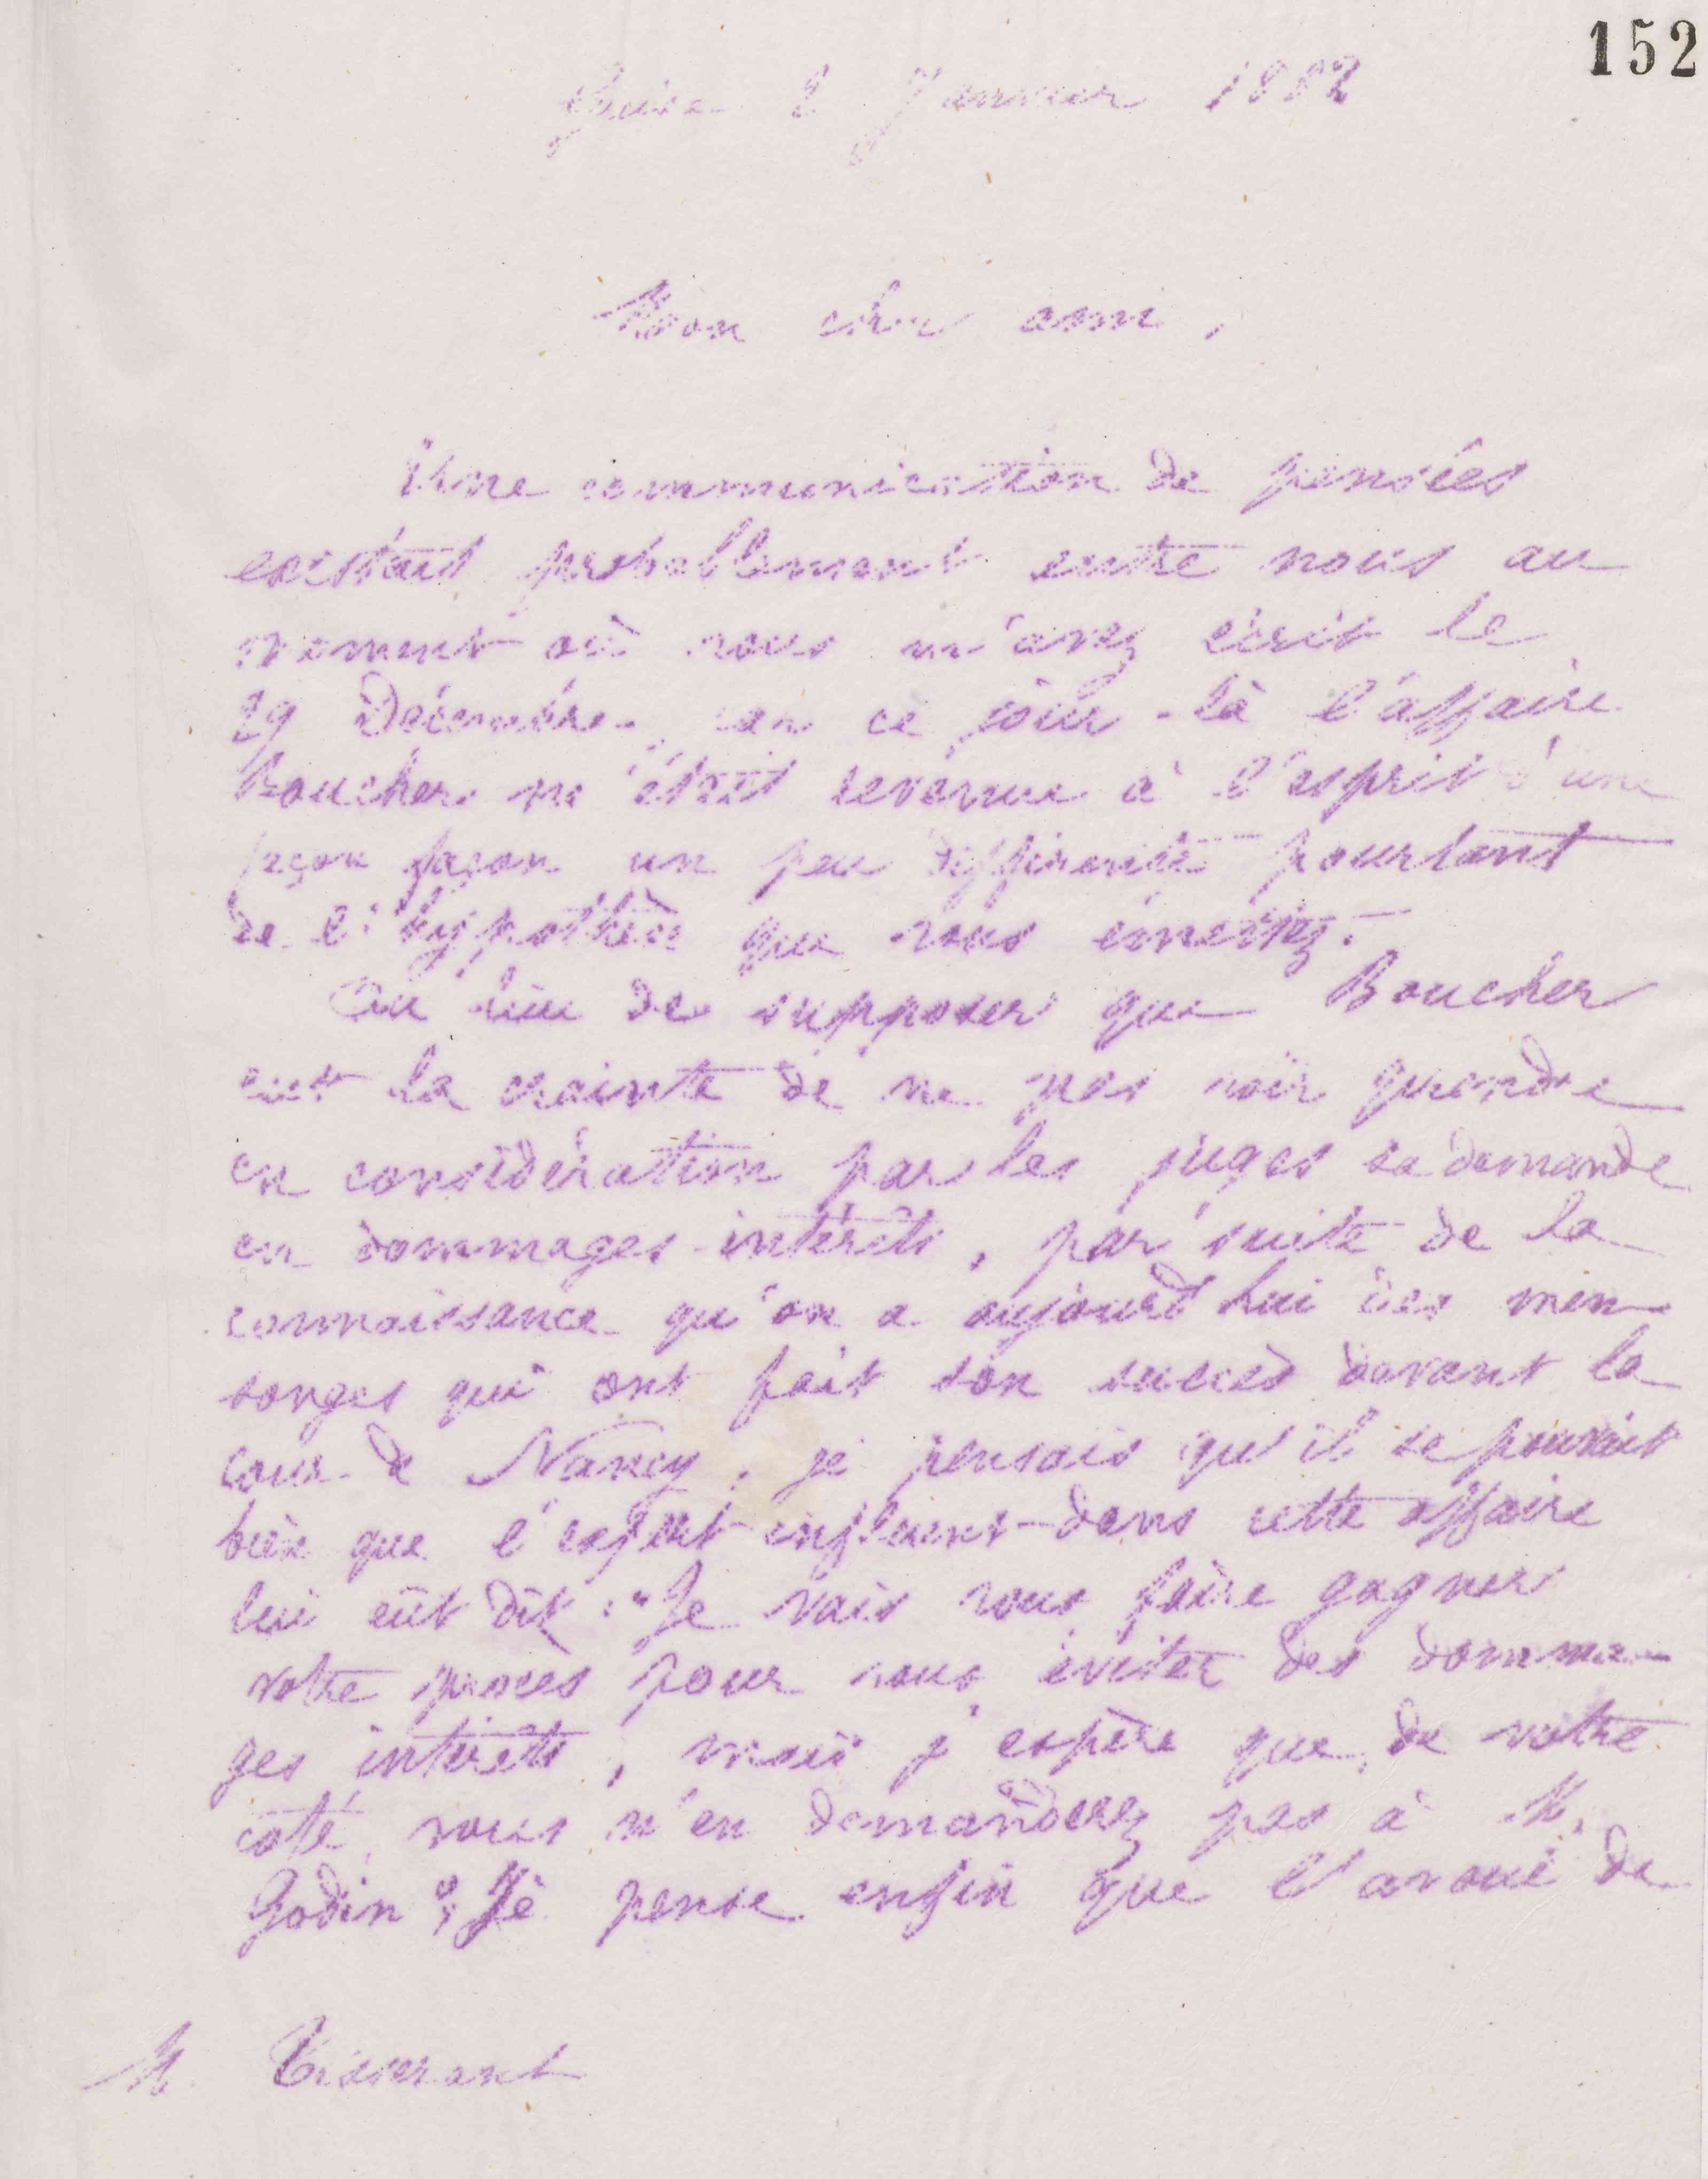 152
Guise 2 Janvier 1882
Mon cher ami,
Une communication de pensées
existait probablement entre nous au
moment où vous m'avez écrit le
29 Décembre, car ce jour-là l'affaire
Boucher m'était revenue à l'esprit d'une
façon façon un peu différente pourtant
de l'hypothèse que vous émettez.
Au lieu de supposer que Boucher
eut la crainte de ne pas voir prendre
en considération par les juges sa demande
en dommages-intérêts, par suite de la
connaissance qu'on a aujourd'hui des men-
songes qui ont fait son succès devant la
cour de Nancy, je pensais qu'il se pouvait
bien que l'expert influent dans cette affaire
lui eût dit : "Je vais vous faire gagner
votre procès pour vous éviter des domma-
ges intérêts, mais j'espère que, de votre
côté, vous n'en demanderez pas à M.
Godin". Je pense enfin que l'avoué de
M. Tisserant